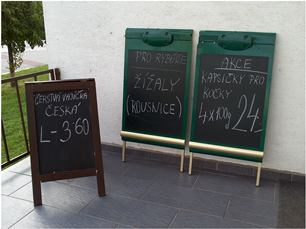 ČERSTVÁ VAJÍČKA
ČESKÁ
L - 3.60
PRO RYBÁŘE
ŽÍŽALY
(ROUSNICE)
AKCE
KAPSIČKY PRO
KOČKY
4x100g 24,-